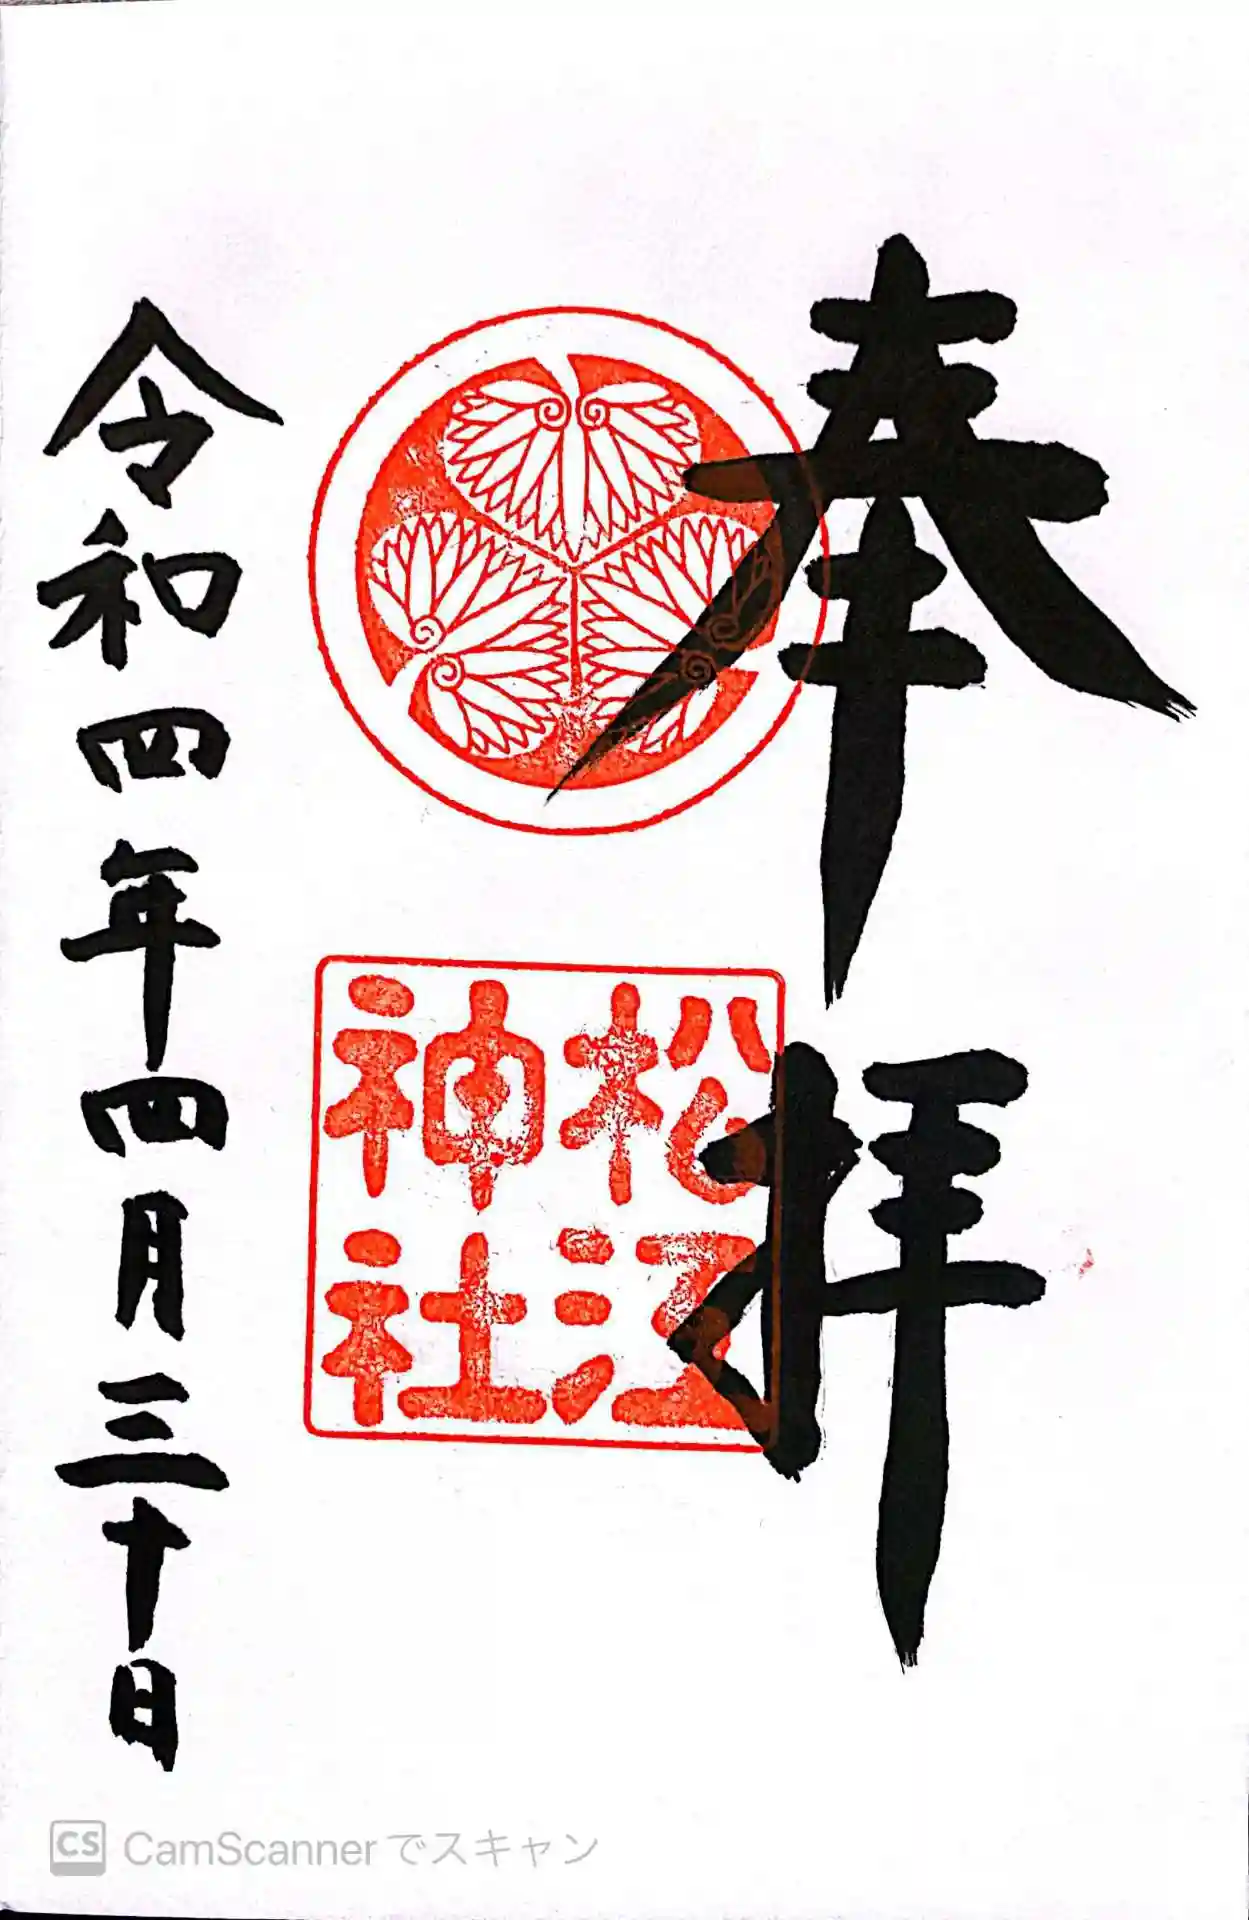 奉拝
松江
神社
令和四年四月三十日
CS CamScannerでスキャン